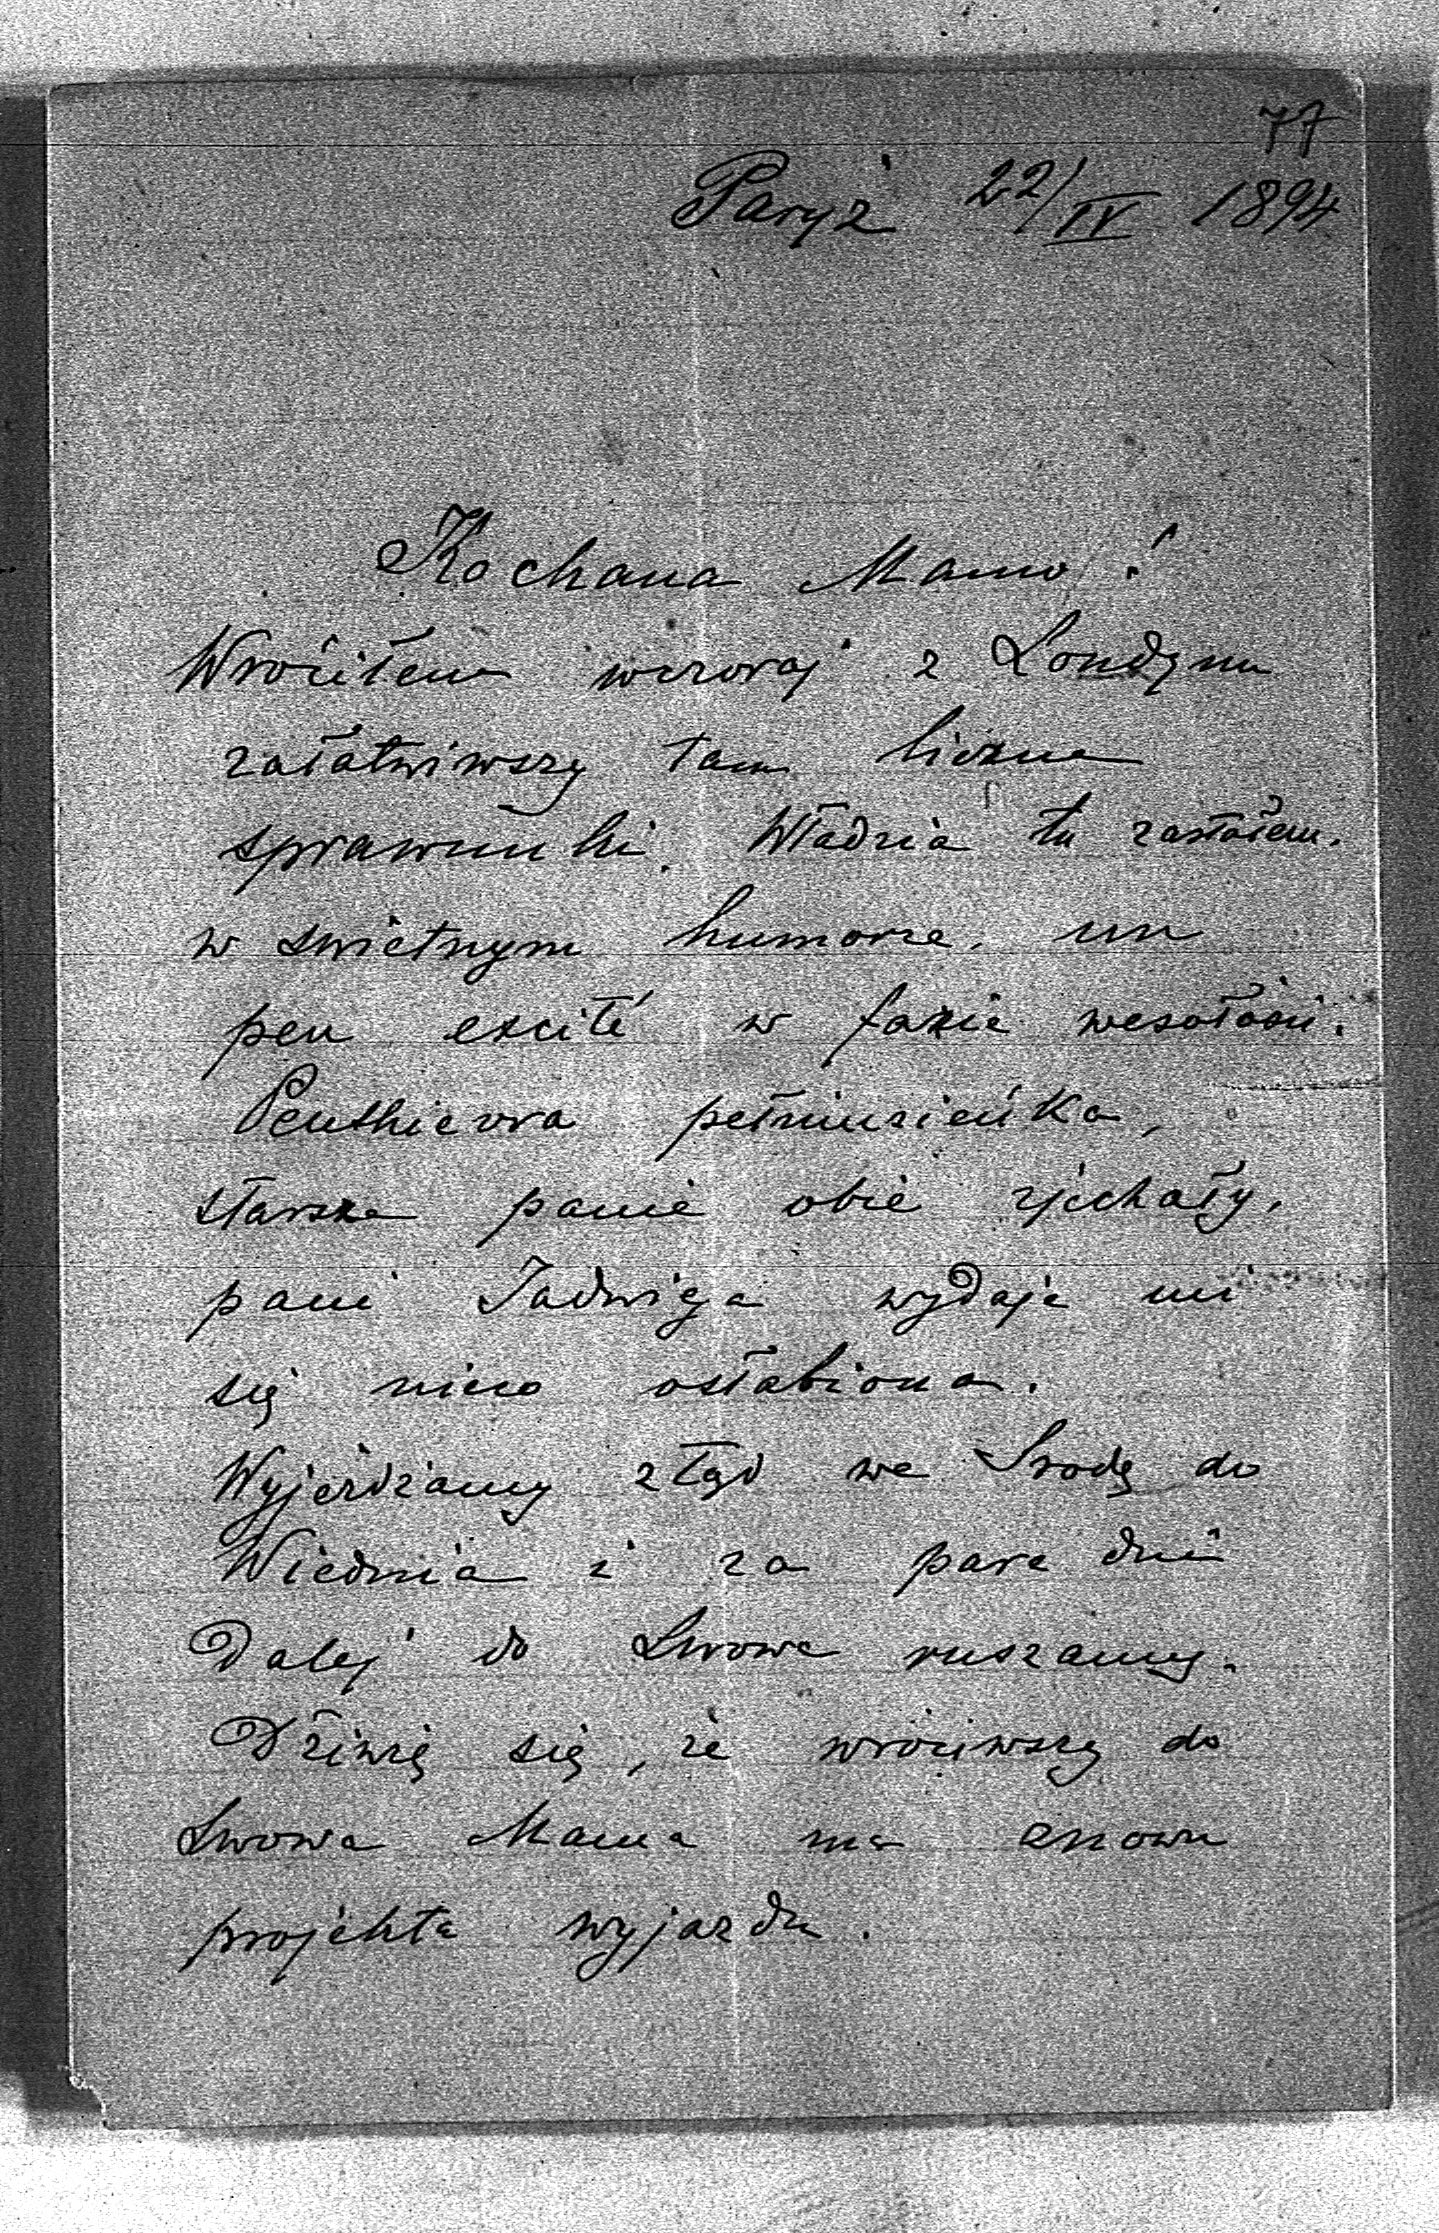 77
Paryż 22/IV 1894
Kochana Mamo!
Wróciłem wczoraj z Londynu
załatwiwszy tam liczne
sprawunki. Władzia tu zastałem
w swietnym humorze, un
peu excité w fazie wesołości.
Penthievra pełniuzieńka,
starsze panie obie zjechały,
pani Jadwiga wydaje mi
się nieco osłabiona.
Wyjeżdżamy ztąd we Srodę do
Wiednia i za parę dni
Dalej do Lwowa ruszamy.
Dziwię się, że wróciwszy do
Lwowa Mama ma znowu
projekta wyjazdu.